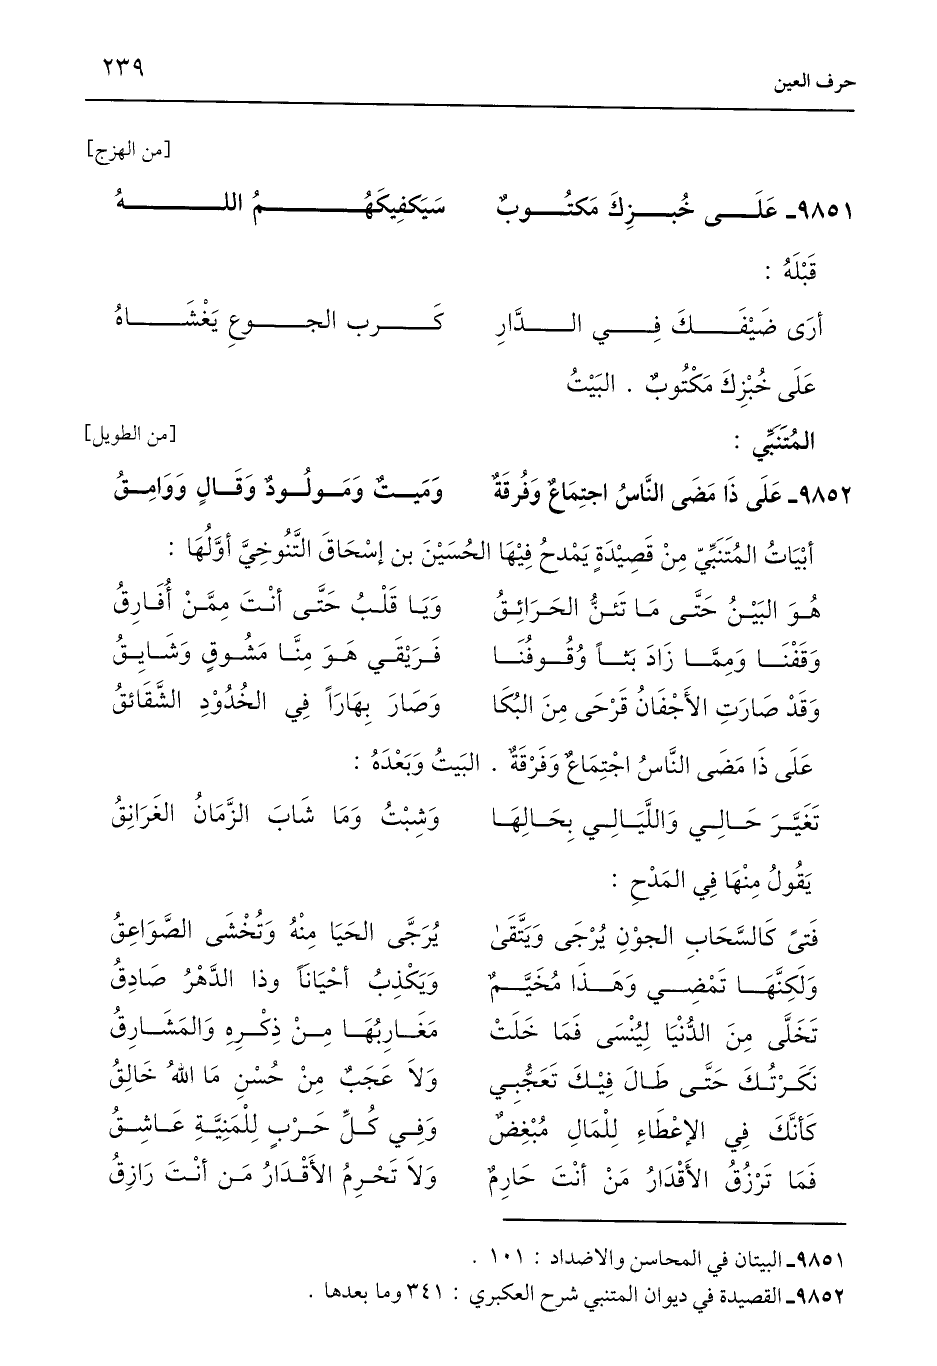 ٢٣٩
حرف العين
[من الهزج]
٩٨٥١ـ عَلَـى خُبـزِكَ مَكتُـوبٌ سَيَكفِيكَهُـمُ اللـهُ
قَبْلَهُ :
أرَى ضَيْفَـكَ فِـي الـدَّارِ كَـرب الجـوعِ يَغْشَـاهُ
عَلَى خُبْزِكَ مَكْتُوبٌ . البَيْتُ
المُتَنَبِّي : [من الطويل]
٩٨٥٢ـ عَلَى ذَا مَضَى النَّاسُ اجتِمَاعٌ وَفُرقَةٌ وَمَيـتٌ وَمَـولُـودٌ وَقَـالٍ وَوَامِـقُ
أبْيَاتُ المُتَنَبِّيّ مِنْ قَصِيْدَةٍ يَمْدحُ فِيْهَا الحُسَيْنَ بن إسْحَاقَ التَّنُوخِيَّ أوَّلُهَا :
هُـوَ البَيْـنُ حَتَّـى مَـا تَئـنُّ الحَـرَائِـقُ وَيَـا قَلْـبُ حَتَّـى أنْـتَ مِمَّـنْ أُفَـارِقُ
وَقَفْنَــا وَمِمَّــا زَادَ بَثــاً وُقُــوفُنَــا فَـرِيْقَـي هَـوَ مِنَّـا مَشُـوقٍ وَشَـايِـقُ
وَقَدْ صَارَتِ الأجْفَانُ قَرْحَى مِنَ البُكَا وَصَارَ بِهَارَاً فِي الخُدُوْدِ الشَّقَائقُ
عَلَى ذَا مَضَى النَّاسُ اجْتِمَاعٌ وَفَرْقَةٌ . البَيتُ وَبَعْدَهُ :
تَغَيَّـرَ حَـالِـي وَاللَّيَـالِـي بِحَـالِهَـا وَشِبْتُ وَمَا شَابَ الزَّمَانُ الغَرَانِقُ
يَقُولُ مِنْهَا فِي المَدْحِ :
فَتىً كَالسَّحَابِ الجوْنِ يُرْجَى وَيَتَّقَىٰ يُرَجَّى الحَيَا مِنْهُ وَتُخْشَى الصَّوَاعِقُ
وَلَكِنَّهَــا تَمْضِــي وَهَــذَا مُخَيَّــمٌ وَيَكْذِبُ أحْيَانَاً وذا الدَّهْرُ صَادِقُ
تَخَلَّى مِنَ الدُّنْيَا لِيُنْسَى فَمَا خَلَتْ مَغَـارِبُهَـا مِـنْ ذِكْـرِهِ وَالمَشَـارِقُ
نَكَـرْتُـكَ حَتَّـى طَـالَ فِيْـكَ تَعَجُّبِـي وَلاَ عَجَبٌ مِنْ حُسْنِ مَا اللهُ خَالِقُ
كَأنَّكَ فِي الإعْطَاءِ لِلْمَالِ مُبْغِضٌ وَفِـي كُـلِّ حَـرْبٍ لِلْمَنِيَّـةِ عَـاشِـقُ
فَمَا تَرْزُقُ الأقْدَارُ مَنْ أنْتَ حَارِمٌ وَلاَ تَحْرِمُ الأقْدَارُ مَن أنْتَ رَازِقُ
٩٨٥١ـ البيتان في المحاسن والاضداد : ١٠١ .
٩٨٥٢ـ القصيدة في ديوان المتنبي شرح العكبري : ٣٤١ وما بعدها .